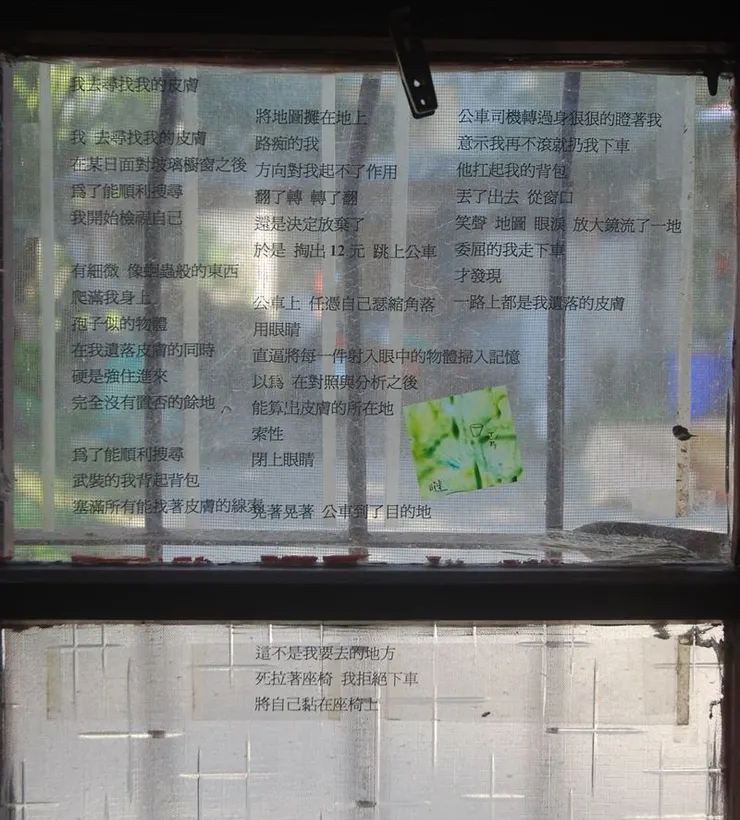 我去尋找我的皮膚
我 去尋找我的皮膚
在某日面對玻璃櫥窗之後
爲了能順利搜尋
我開始檢視自己
有細微 像蛔蟲般的東西
爬滿我身上
孢子似的物體
在我遺落皮膚的同時
硬是強住進來
完全沒有置否的餘地
爲了能順利搜尋
武裝的我背起背包
塞滿所有能找著皮膚的線索
將地圖攤在地上
路痴的我
方向對我起不了作用
翻了轉 轉了翻
還是決定放棄了
於是 掏出 12 元 跳上公車
公車上 任憑自己瑟縮角落
用眼睛
直逼將每一件射入眼中的物體掃入記憶
以爲 在對照與分析之後
能算出皮膚的所在地
索性
閉上眼睛
晃著晃著 公車到了目的地
這不是我要去的地方
死拉著座椅 我拒絕下車
將自己黏在座椅上
公車司機轉過身狠狠的瞪著我
意示我再不滾就扔我下車
他扛起我的背包
丟了出去 從窗口
笑聲 地圖 眼淚 放大鏡流了一地
委屈的我走下車
才發現
一路上都是我遺落的皮膚